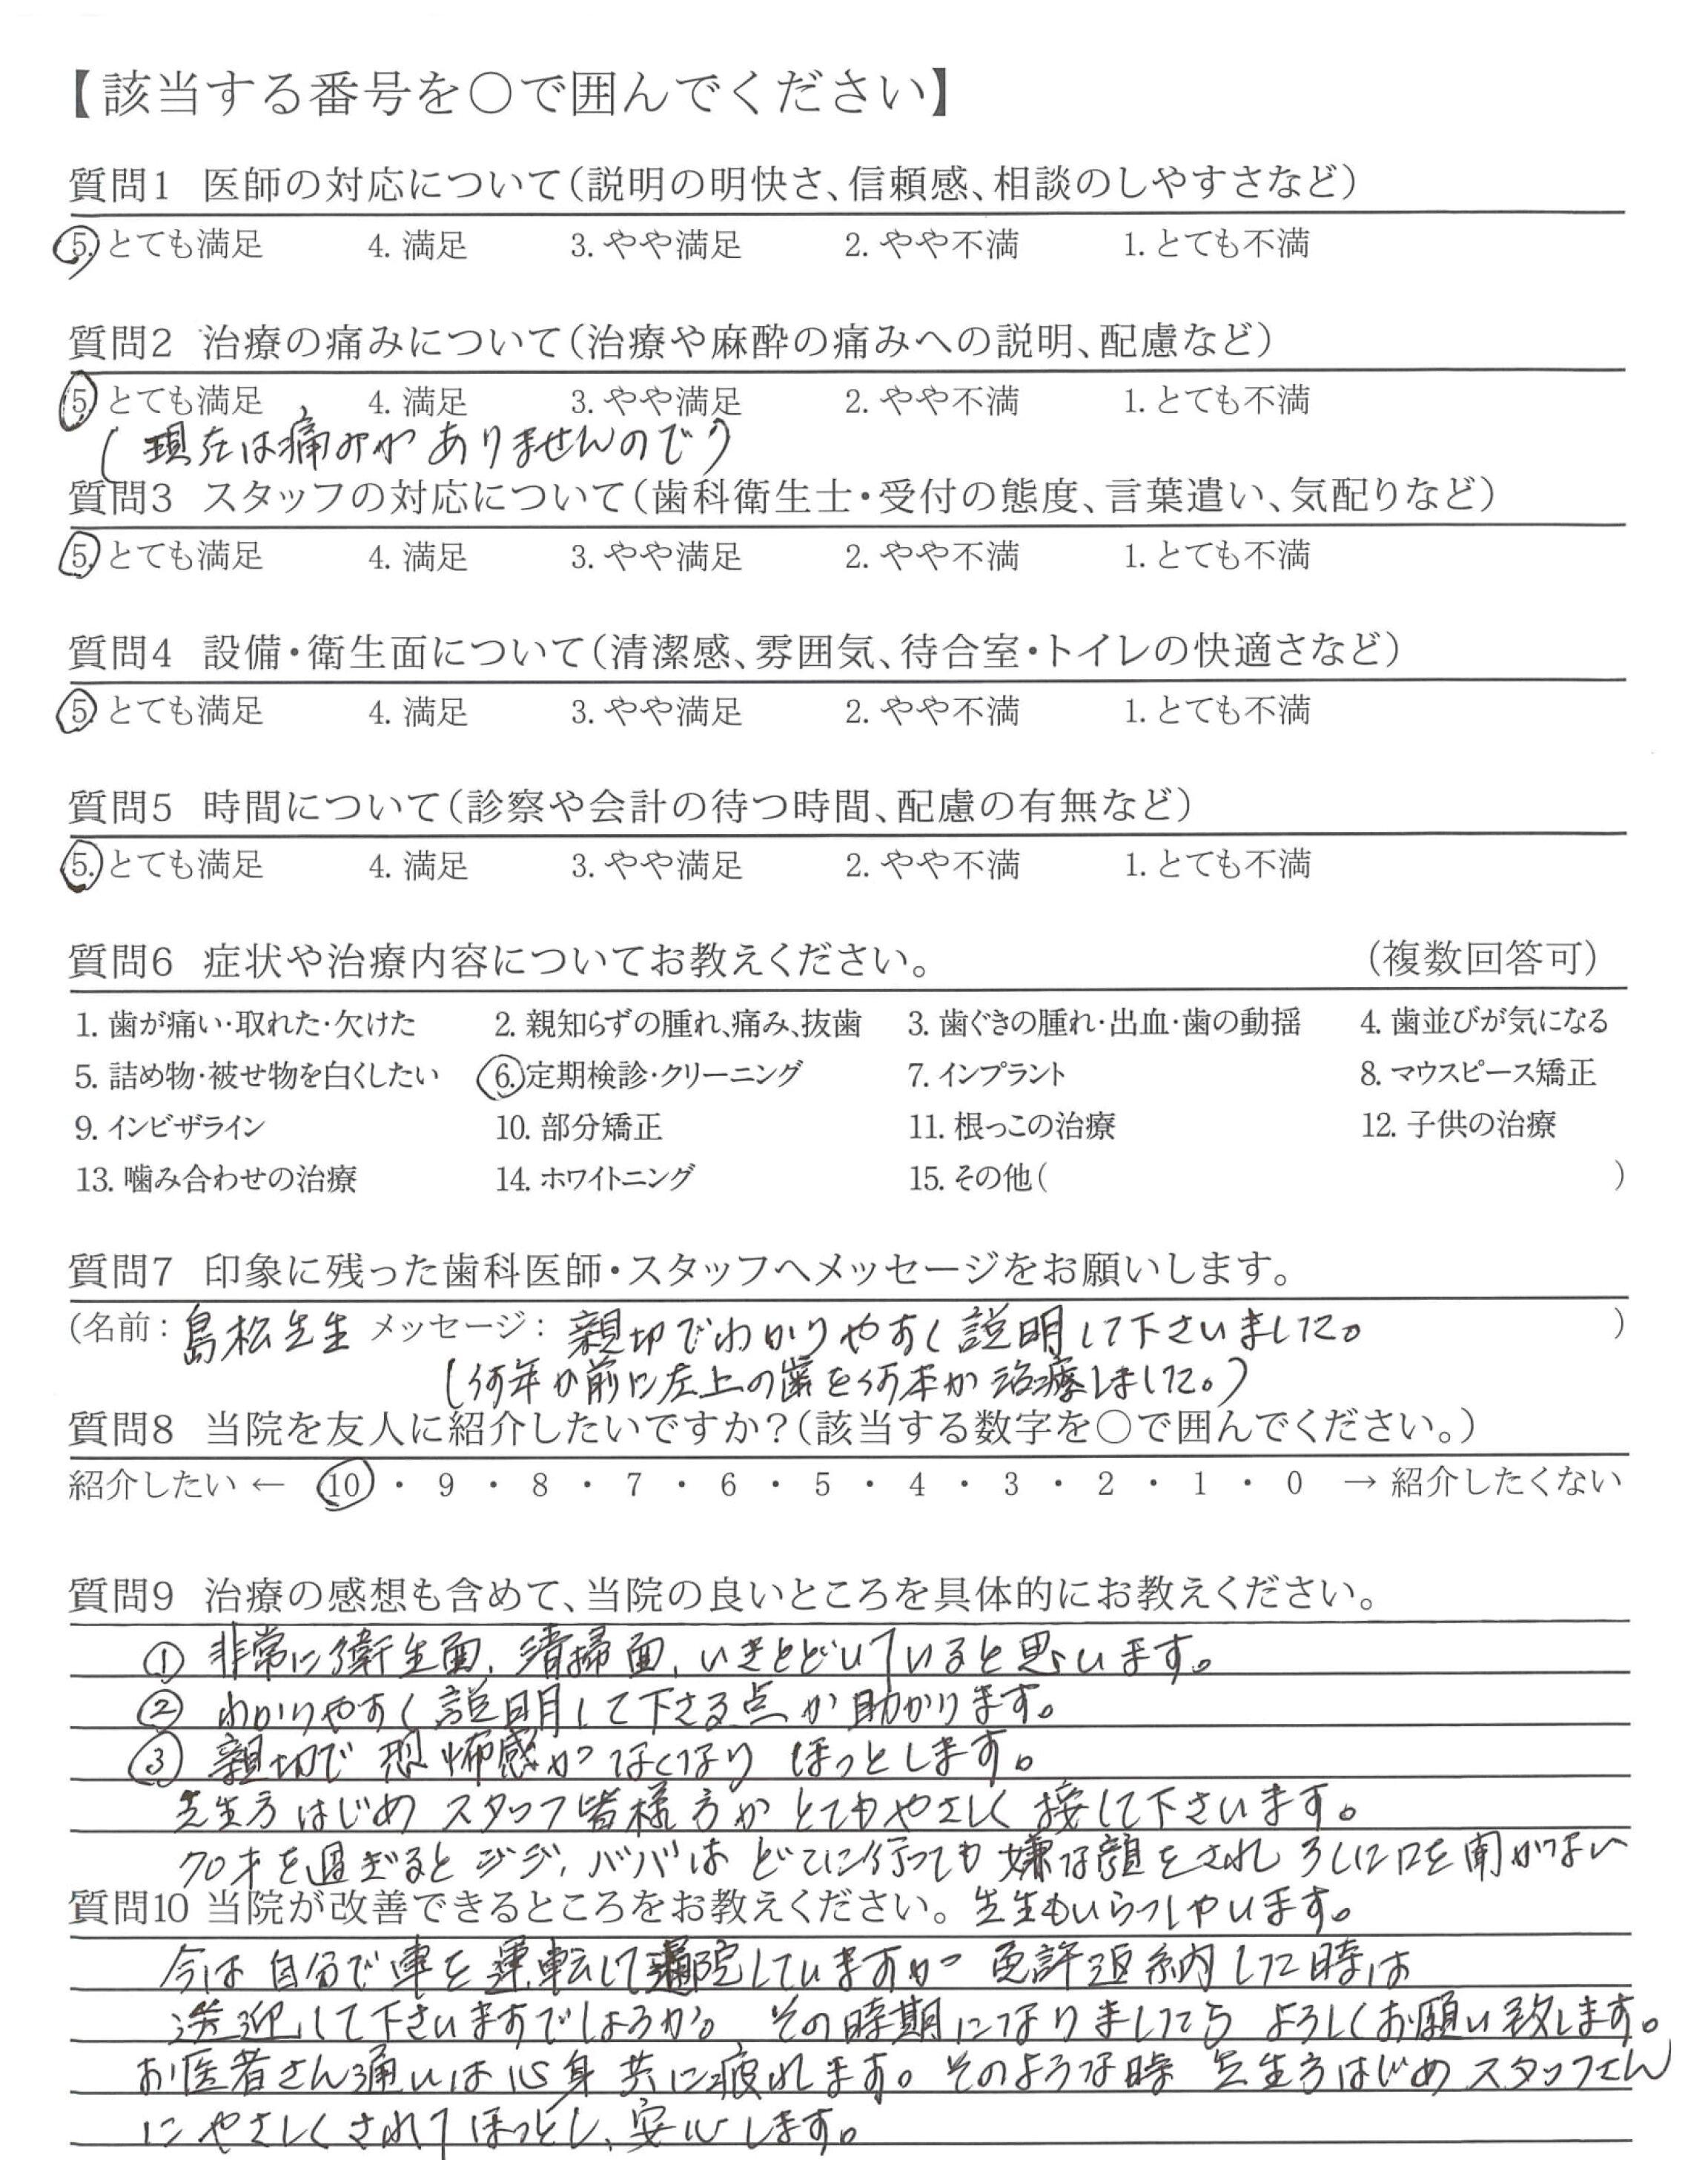 【該当する番号を○で囲んでください】
質問1 医師の対応について(説明の明快さ、信頼感、相談のしやすさなど)
5. とても満足 4. 満足 3. やや満足 2. やや不満 1. とても不満
質問2 治療の痛みについて(治療や麻酔の痛みへの説明、配慮など)
5. とても満足 4. 満足 3. やや満足 2. やや不満 1. とても不満
(現在は痛みがありませんので)
質問3 スタッフの対応について(歯科衛生士・受付の態度、言葉遣い、気配りなど)
5. とても満足 4. 満足 3. やや満足 2. やや不満 1. とても不満
質問4 設備・衛生面について(清潔感、雰囲気、待合室・トイレの快適さなど)
5. とても満足 4. 満足 3. やや満足 2. やや不満 1. とても不満
質問5 時間について(診察や会計の待つ時間、配慮の有無など)
5. とても満足 4. 満足 3. やや満足 2. やや不満 1. とても不満
質問6 症状や治療内容についてお教えください。 (複数回答可)
1. 歯が痛い・取れた・欠けた 2. 親知らずの腫れ、痛み、抜歯 3. 歯ぐきの腫れ・出血・歯の動揺 4. 歯並びが気になる
5. 詰め物・被せ物を白くしたい 6. 定期検診・クリーニング 7. インプラント 8. マウスピース矯正
9. インビザライン 10. 部分矯正 11. 根っこの治療 12. 子供の治療
13. 噛み合わせの治療 14. ホワイトニング 15. その他( )
質問7 印象に残った歯科医師・スタッフへメッセージをお願いします。
(名前: 島松先生 メッセージ: 親切でわかりやすく説明して下さいました。 )
(何年か前に左上の歯を何本か治療しました。)
質問8 当院を友人に紹介したいですか?(該当する数字を○で囲んでください。)
紹介したい ← 10 ・ 9 ・ 8 ・ 7 ・ 6 ・ 5 ・ 4 ・ 3 ・ 2 ・ 1 ・ 0 → 紹介したくない
質問9 治療の感想も含めて、当院の良いところを具体的にお教えください。
① 非常に衛生面、清掃面、いきとどいていると思います。
② わかりやすく説明して下さる点が助かります。
③ 親切で恐怖感がなくなり ほっとします。
先生方はじめ スタッフ皆様方がとてもやさしく接して下さいます。
70才を過ぎるとジジ、ババはどこに行っても嫌な顔をされ ろくに口を聞かない
質問10 当院が改善できるところをお教えください。 先生もいらっしゃいます。
今は自分で車を運転して通院していますが 免許返納した時は
送迎して下さいますでしょうか。その時期になりましたら よろしくお願い致します。
お医者さん通いは心身共に疲れます。そのような時 先生方はじめ スタッフさん
にやさしくされてほっとし、安心します。